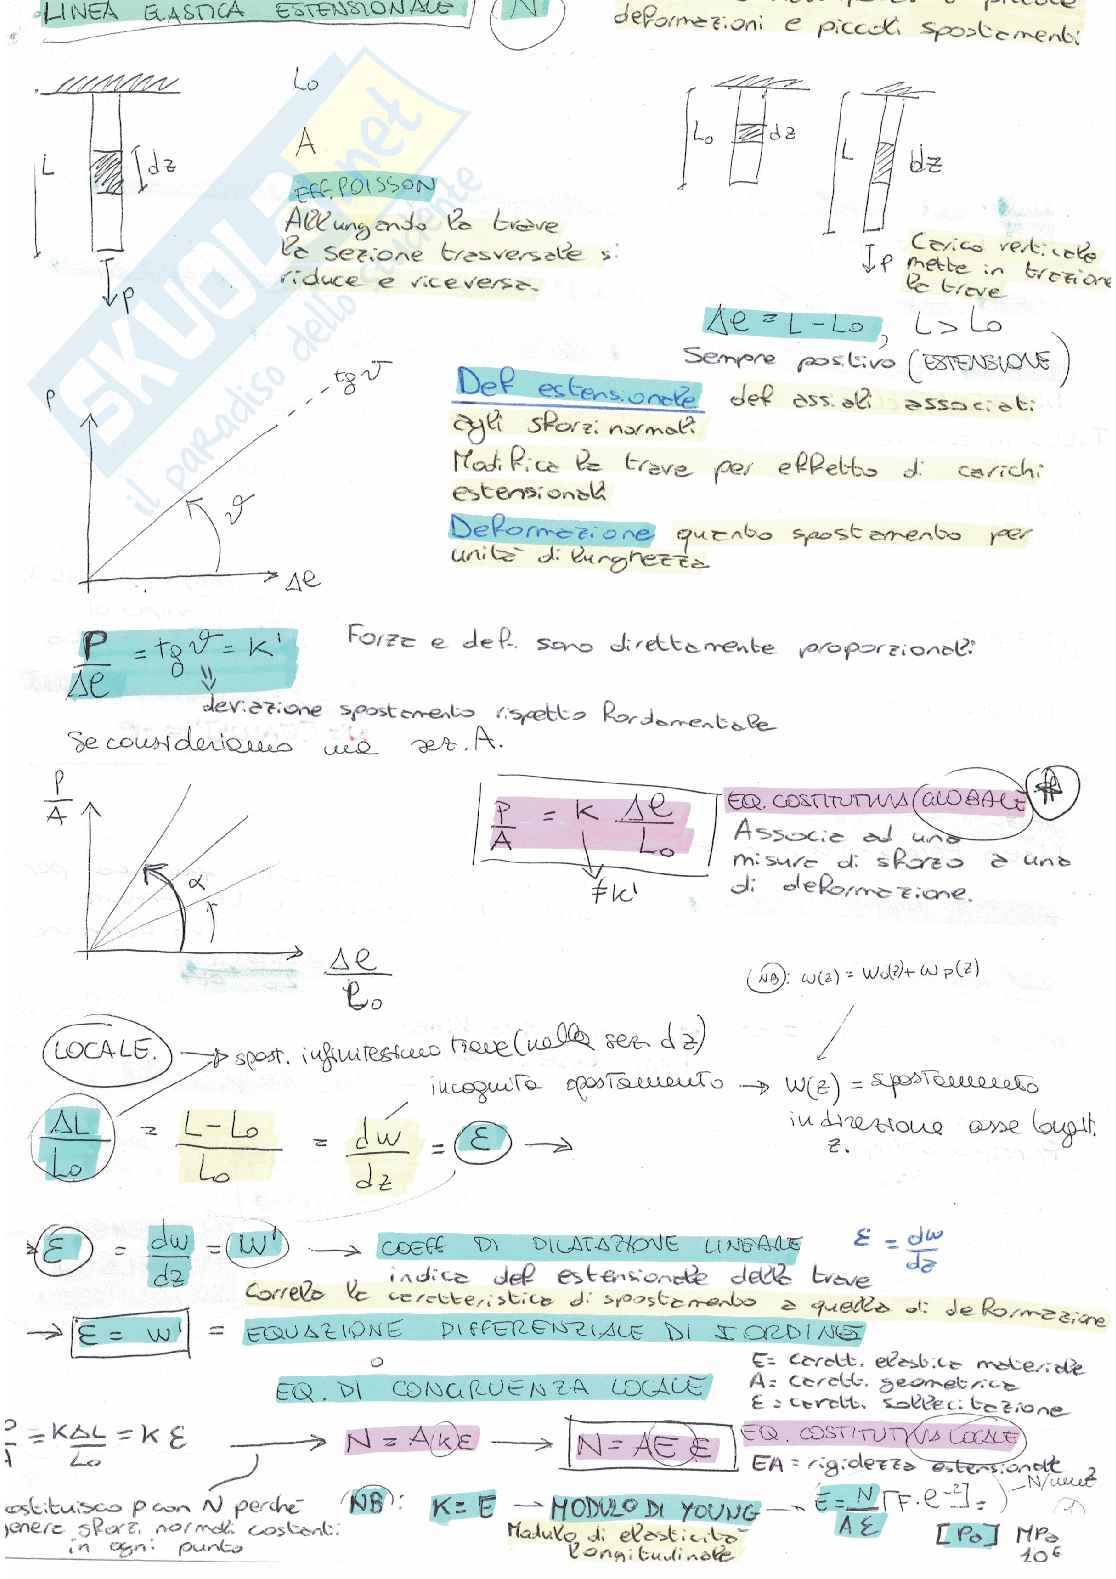 LINEA ELASTICA ESTENSIONALE N
deformazioni e piccoli spostamenti
L₀
A
L
dz
P
EFF. POISSON
Allungando la trave
la sezione trasversale si
riduce e viceversa.
L₀
dz
L
dz
P
Carico verticale
mette in trazione
la trave
Δl = L - L₀, L > L₀
Sempre positivo (ESTENSIONE)
SKUOLA.net
il paradiso dello studente
P
tg ϑ
ϑ
Δl
Def estensionale def assiali associati
agli sforzi normali
Modifica la trave per effetto di carichi
estensionali
Deformazione quanto spostamento per
unità di lunghezza
P/Δl = tg ϑ = K'
Forza e def. sono direttamente proporzionali
deviazione spostamento rispetto fondamentale
Se consideriamo una sez. A.
P/A
α
Δl/l₀
P/A = K Δl/L₀
≠ K'
EQ. COSTITUTIVA GLOBALE
Associa ad una
misura di sforzo a una
di deformazione.
(NB): w(z) = w₀(z) + wp(z)
LOCALE. → spost. infinitesimo trave (nella sez dz)
incognita spostamento → w(z) = spostamento
in direzione asse longit.
z.
ΔL/L₀ = L - L₀/L₀ = dw/dz = ε →
→ ε = dw/dz = w' → COEFF DI DILATAZIONE LINEARE ε = dw/dz
indica def estensionale della trave
Correla la caratteristica di spostamento a quella di deformazione
→ ε = w' = EQUAZIONE DIFFERENZIALE DI I ORDINE
o
EQ. DI CONGRUENZA LOCALE
E = caratt. elastica materiale
A = caratt. geometrica
ε = caratt. sollecitazione
P/A = KΔL/L₀ = K ε → N = AKε → N = AEε EQ. COSTITUTIVA LOCALE
EA = rigidezza estensionale
ostituisco P con N perché
genera sforzi normali costanti
in ogni punto
NB: K = E → MODULO DI YOUNG → E = N/Aε [F·l⁻²] = N/mm²
Modulo di elasticità
longitudinale
[Pa] MPa
10⁶